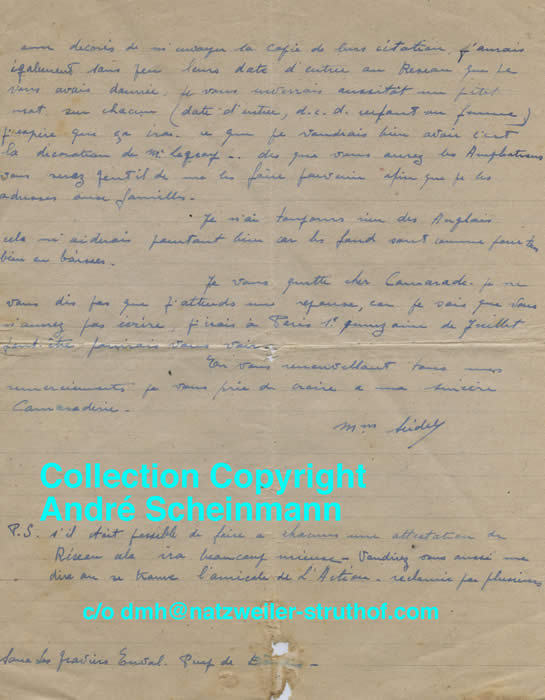 décorés de m'envoyer la copie de leurs citation, j'aurais
également sans peu leurs date d'entrée au Réseau que je
vous avais donnée. je vous enverrais aussitôt un petit
mot sur chacun (date d'entrée, d.c.d. enfant ou femme)
j'espère que ça ira. ce que je voudrais bien avoir c'est
la décoration de Mr .. dès que vous aurez les
vous serez gentil de me les faire parvenir afin que je les
adresses aux familles.
Je n'ai toujours rien des Anglais
cela m'aiderais pourtant bien car les fond sont comme
bien en baisses.
Je vous quitte cher Camarade. je ne
vous dis pas que j'attends une reponse, car je sais que vous
n'aurez pas écrire, j'irais à Paris 1º quinzaine de Juillet
peut être pourrais vous voir.
En vous renouvellant tous mes
remerciements je vous prie de croire a ma sincère
Camaraderie.
Mme Seidel
Collection Copyright
André Scheinmann
P.S. s'il était possible de faire a chacuns une attestation du
Réseau cela ira beaucoup mieuse. Voudriez vous aussi me
dire ou se trouve l'amicale de L'Action. reclamée par plusieurs
c/o dmh@natzweiler-struthof.com
Enval. Puy de